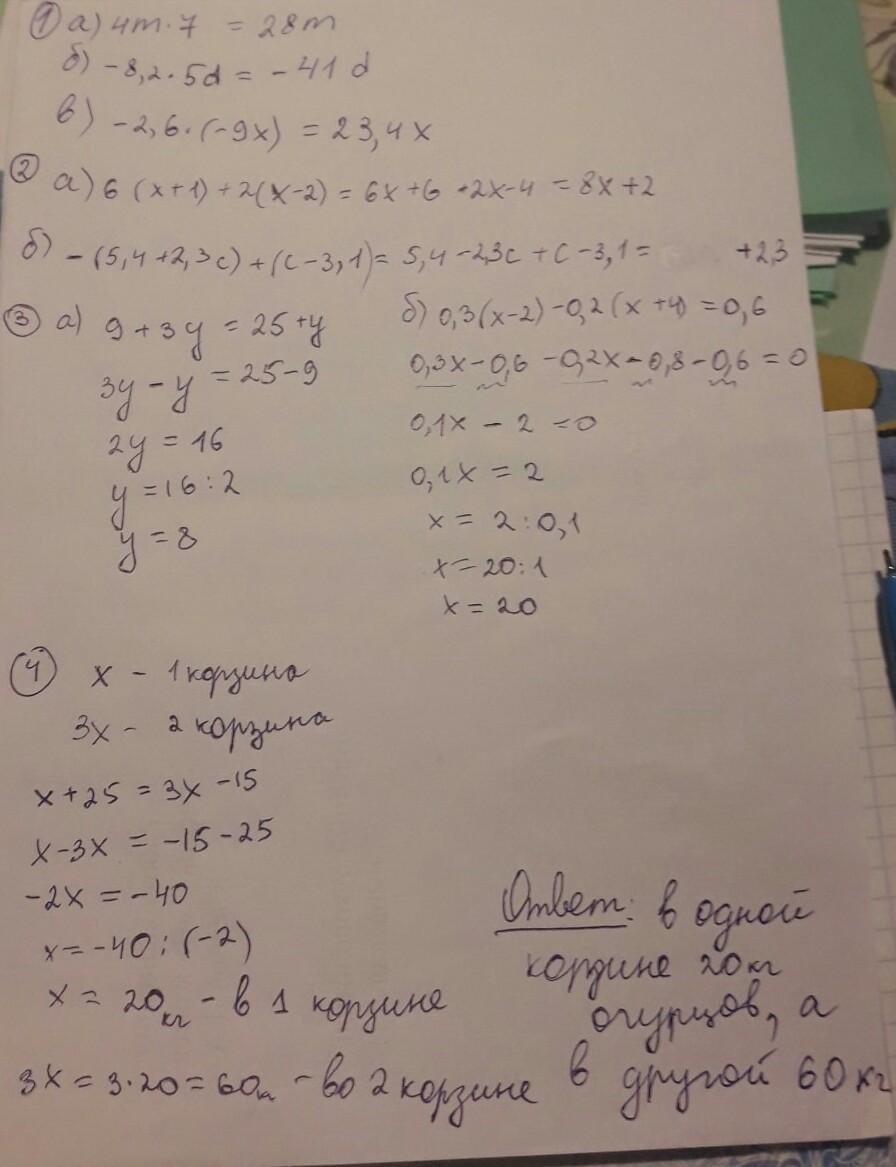 ① а) 4m·7 = 28m
б) -8,2·5d = -41d
в) -2,6·(-9x) = 23,4x
② а) 6(x+1)+2(x-2) = 6x+6+2x-4 = 8x+2
б) -(5,4+2,3c)+(c-3,1) = 5,4-2,3c+c-3,1= +2,3
③ а) 9+3y = 25+y
3y-y = 25-9
2y = 16
y = 16:2
y = 8
б) 0,3(x-2)-0,2(x+4) = 0,6
0,3x-0,6-0,2x-0,8-0,6 = 0
0,1x-2 = 0
0,1x = 2
x = 2:0,1
x = 20:1
x = 20
④ x - 1 корзина
3x - 2 корзина
x+25 = 3x-15
x-3x = -15-25
-2x = -40
x = -40:(-2)
x = 20кг - в 1 корзине
3x = 3·20 = 60 - во 2 корзине
Ответ: в одной
корзине 20кг
огурцов, а
в другой 60кг